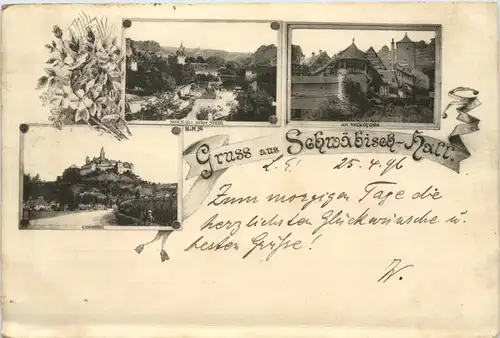 AM WEILERTOR
Gruss aus Schwäbisch-Hall.
L. E! 25.4.96
Zum morgigen Tage die
herzlichsten Glückwünsche u.
besten Grüße!
W.